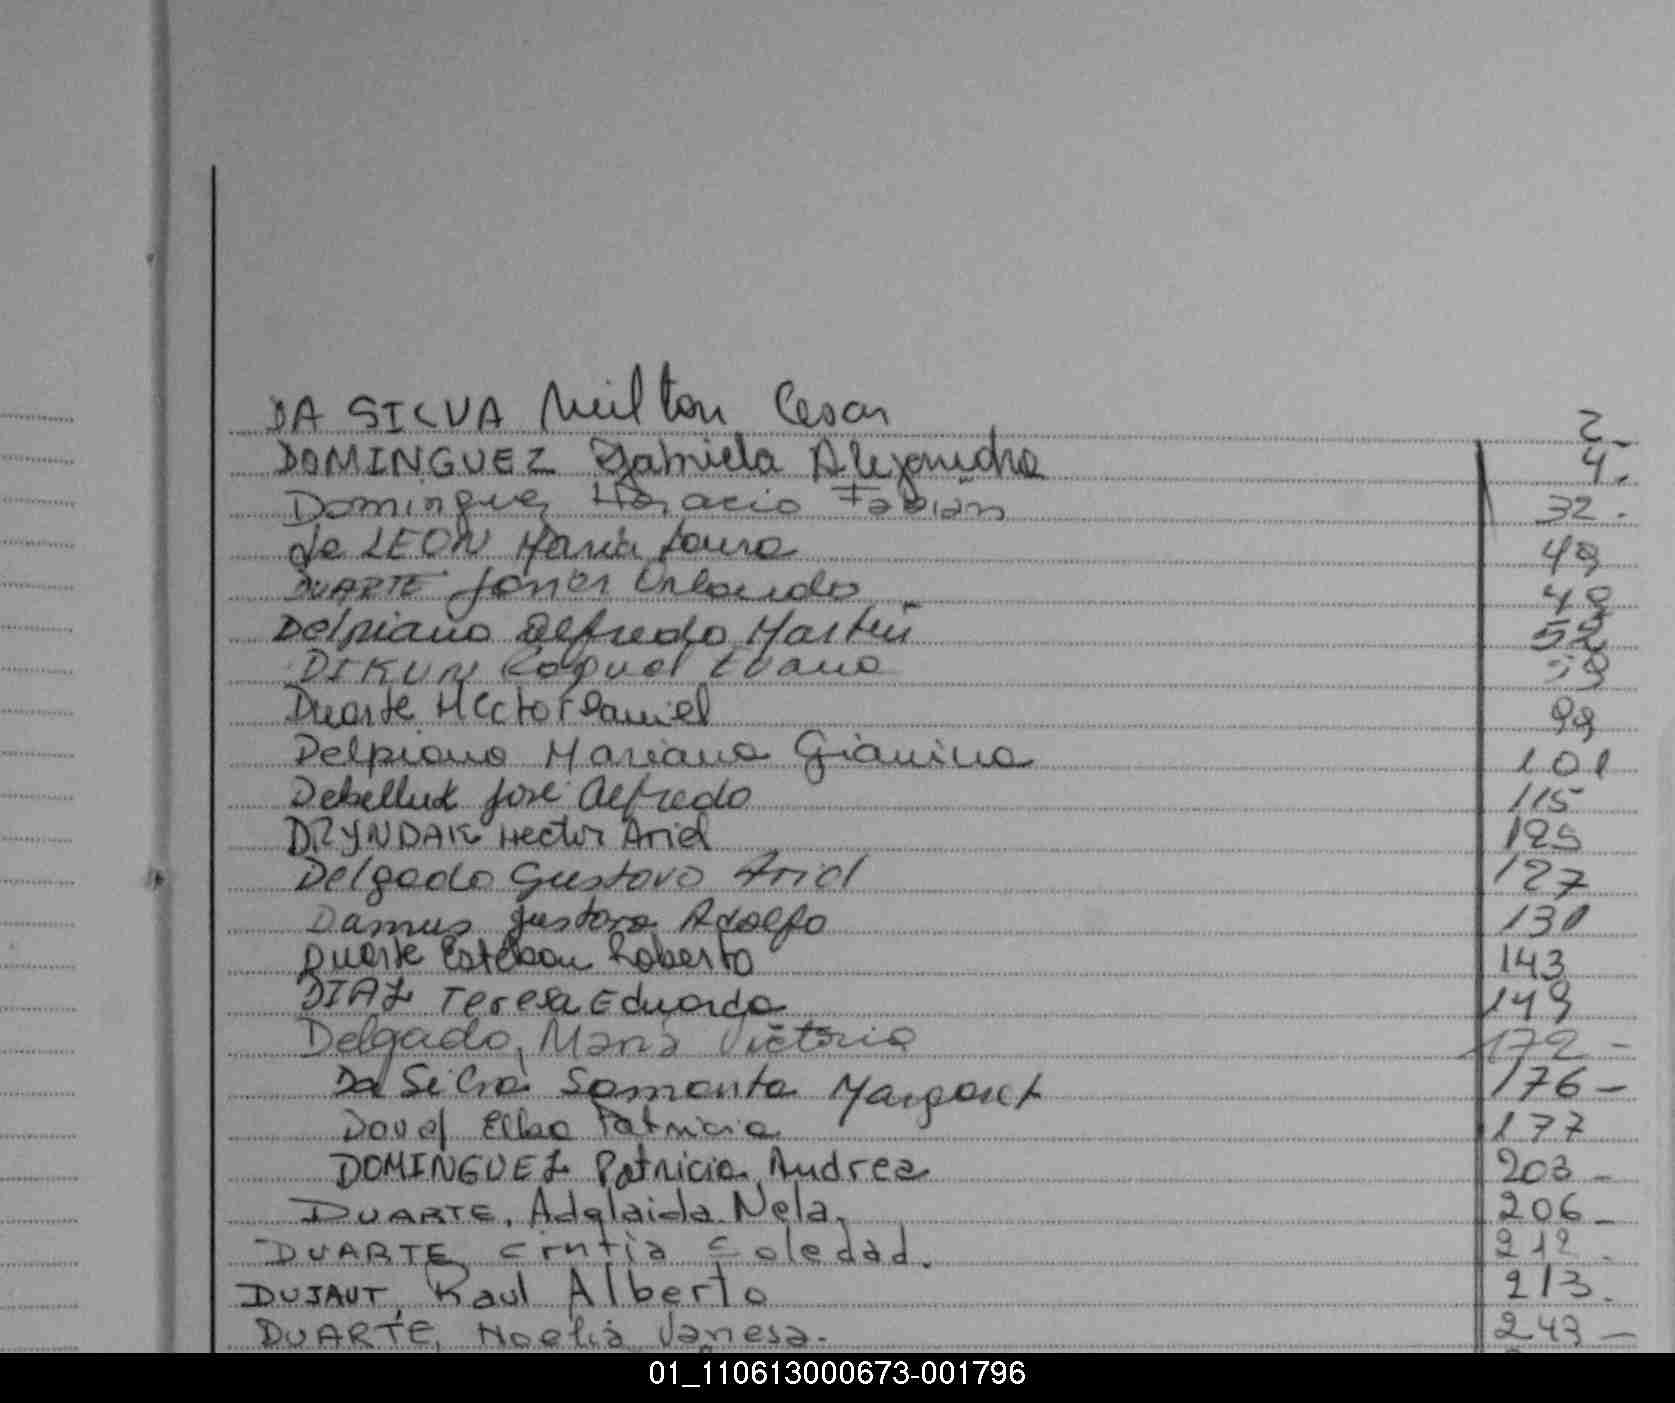 DA SILVA Milton Cesar 2.
DOMINGUEZ Gabriela Alejandra 4.
Dominguez Horacio Fabián 32.
de LEON Maria Laura 49
DUARTE Javier Orlando 49
Delpiano Alfredo Martin 52
DIKUN Raquel
Duarte Hector Daniel 99
Delpiano Mariana Gianina 101
José Alfredo 115
DRYNDAK Hector Ariel 125
Delgado Gustavo Ariel 127
Damus Gustavo Adolfo 130
Duarte Esteban Roberto 143
DIAZ Teresa Eduarda 149
Delgado, Maria Victoria 172-
Da Silva Samanta Margaret 176-
Elba Patricia 177
DOMINGUEZ Patricia Andrea 203-
DUARTE, Adelaida Nela, 206-
DUARTE Cintia Soledad. 212.
DUJAUT, Raul Alberto 213.
DUARTE, Noelia Vanesa. 249-
01_110613000673-001796